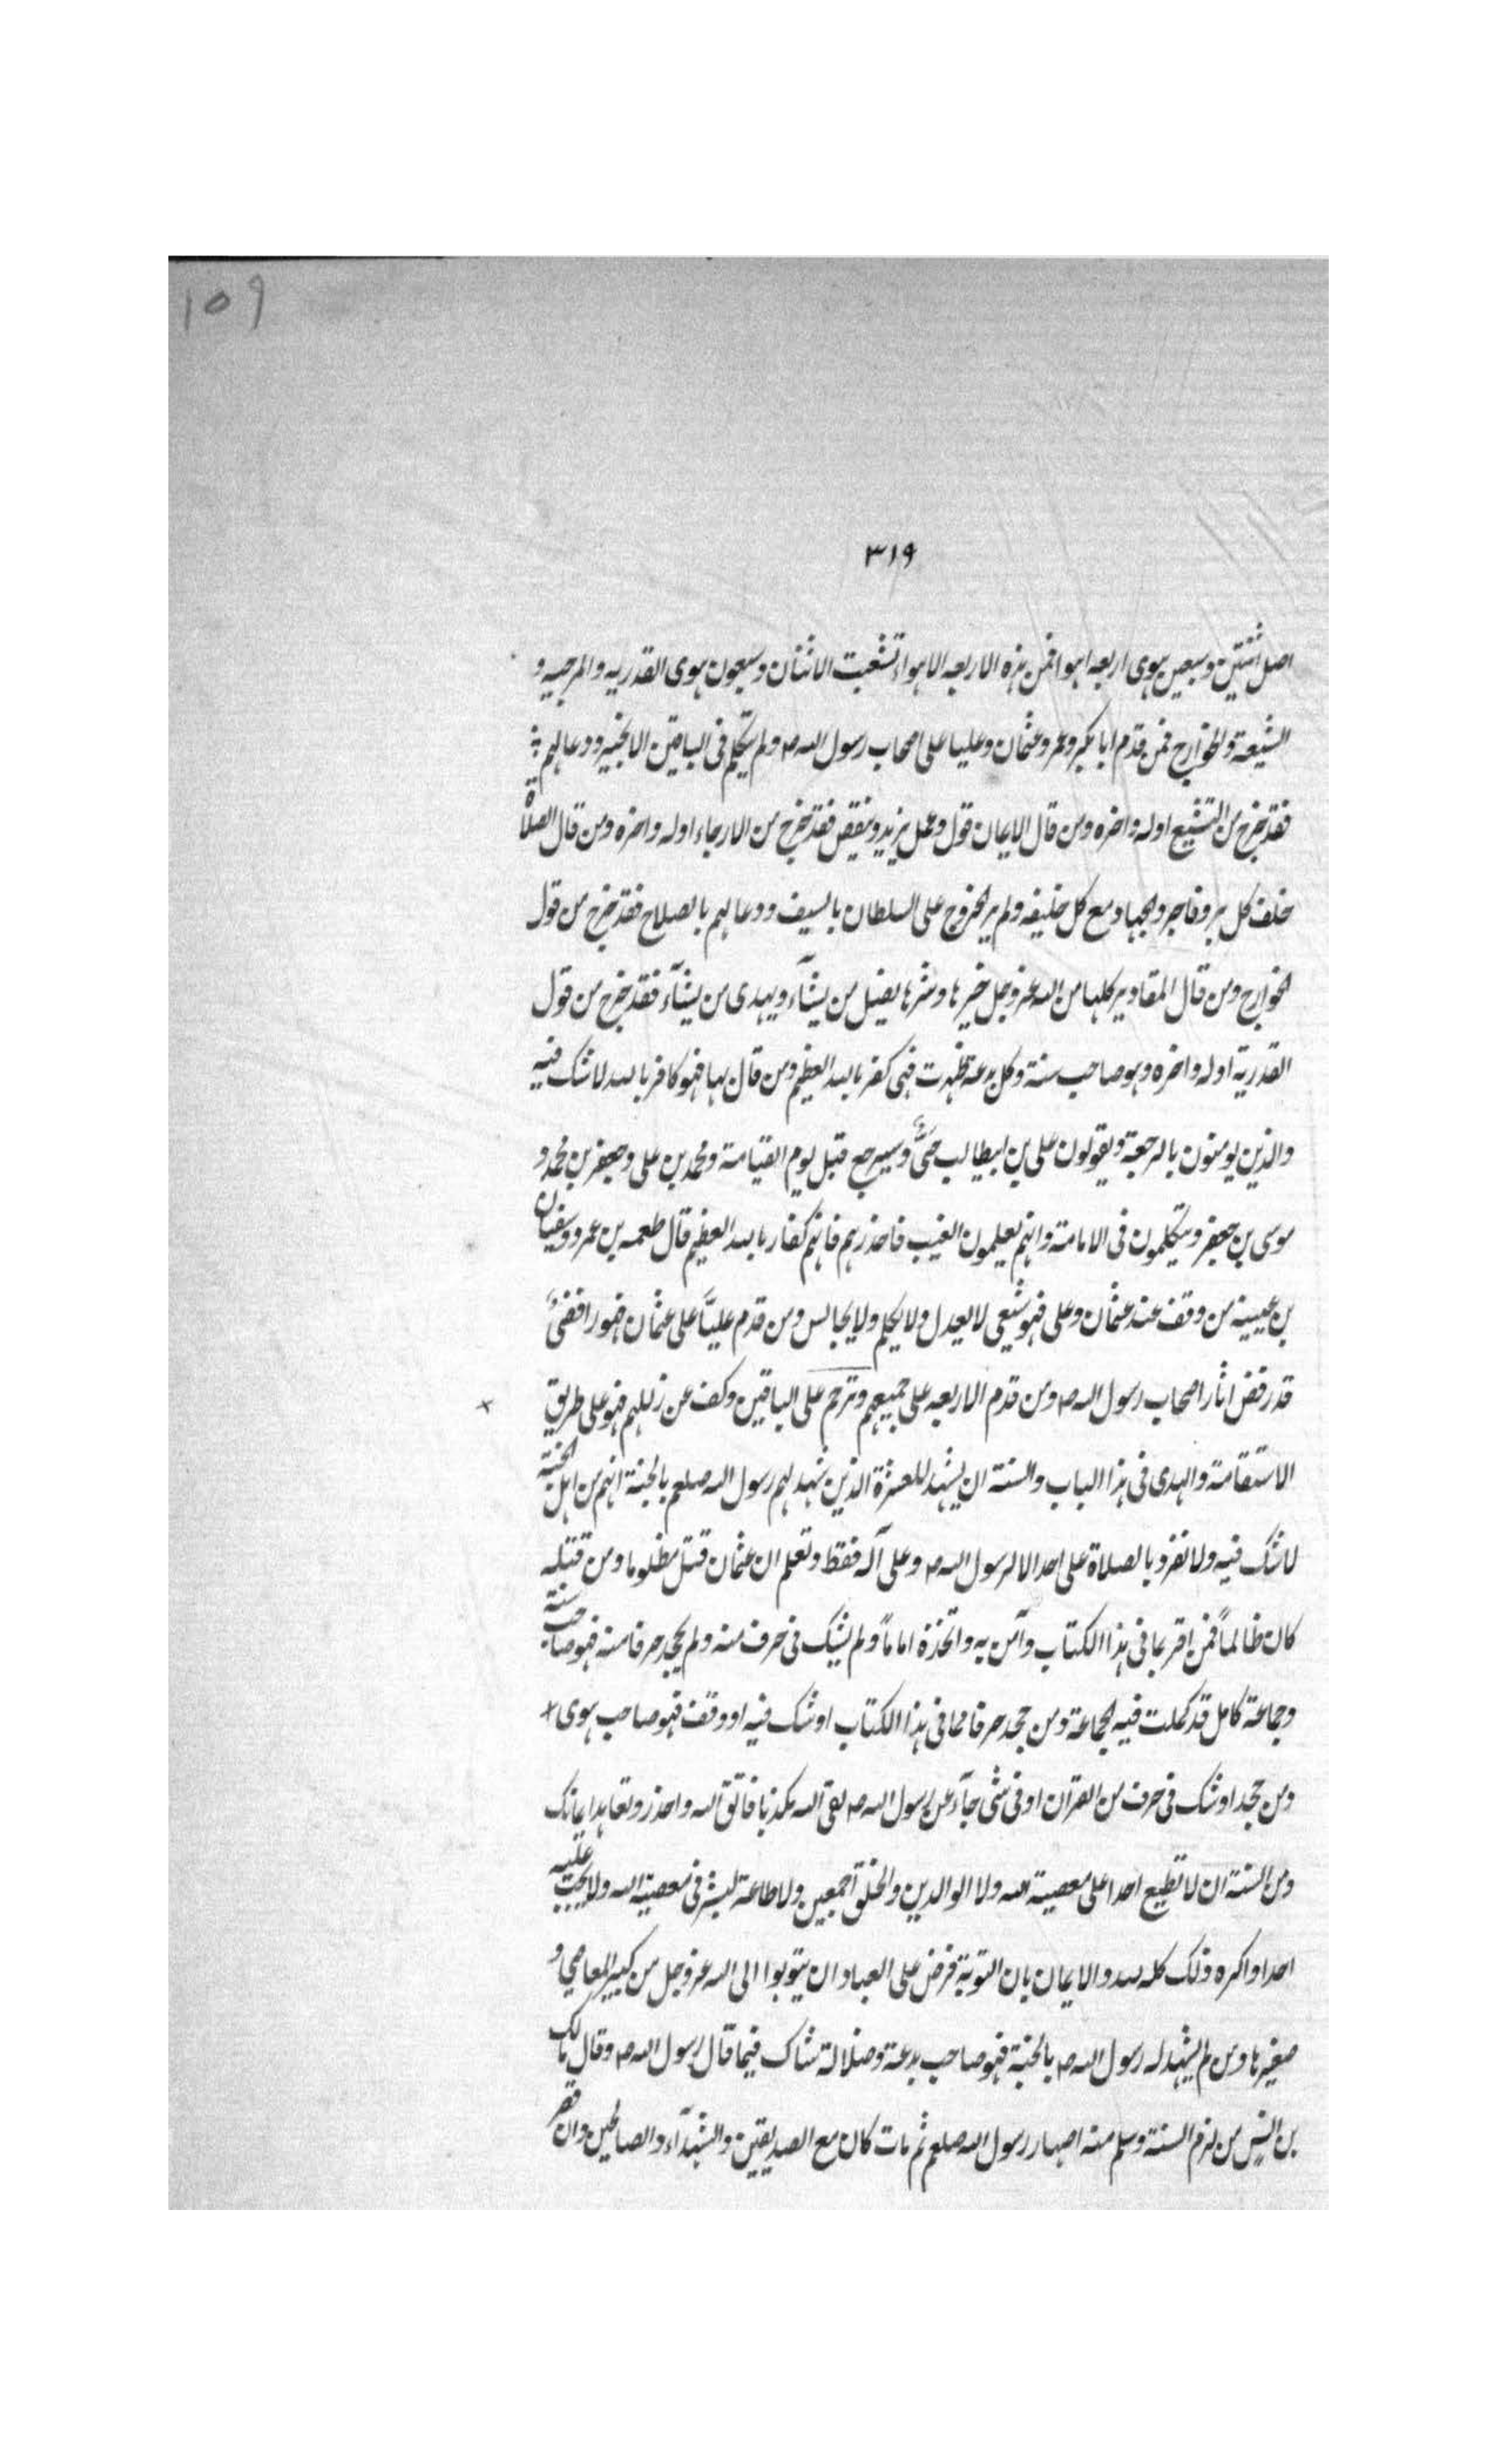 ١٥٩
٣١٩
اصل اثنتين وسبعين هوى اربعه اهوا فمن هذه الاربعه الاهواء تشعبت الاثنان وسبعون هوى القدريه والمرجيه و
الشيعة والخوارج فمن قدم ابا بكر وعمر وعثمان وعليا على اصحاب رسول الله صـ ولم يتكلم فى الباقين الا بخير ودعا لهم
فقد خرج من التشيع اوله واخره ومن قال الايمان قول وعمل يزيد وينقص فقد خرج من الارجاء اوله واخره ومن قال الصلاة
خلف كل بر وفاجر والجهاد مع كل خليفه ولم ير الخروج على السلطان بالسيف ودعا لهم بالصلاح فقد خرج من قول
الخوارج ومن قال المقادير كلها من الله عز وجل خيرها وشرها يضل من يشآء ويهدى من يشآء فقد خرج من قول
القدرية اوله واخره وهو صاحب سنة وكل بدعة ظهرت فهى كفر بالله العظيم ومن قال بها فهو كافر بالله لا شك فيه
والذين يومنون بالرجعة ويقولون على بن ابيطالب حىٌّ وسيرجع قبل يوم القيامة ومحمد بن على وجعفر بن محمد و
موسى بن جعفر ويتكلمون فى الامامة وانهم يعلمون الغيب فاحذرهم فانهم كفار بالله العظيم قال طعمه بن عمرو وسفيان
بن عيينة من وقف عند عثمان وعلى فهو شيعى لا يعدل ولا يكلم ولا يجالس ومن قدم عليًّا على عثمان فهو رافضىٌ
قد رفض اثار اصحاب رسول الله صـ ومن قدم الاربعه على جميعهم وترحم على الباقين وكف عن زللهم فهو على طريق
الاستقامة والهدى فى هذا الباب والسنة ان يشهد للعشرة الذين شهد لهم رسول الله صلعم بالجنة انهم من اهل الجنة
لا شك فيه ولا نفرد بالصلاة على احد الا لرسول الله صـ وعلى آله فقط وتعلم ان عثمان قتل مظلوما ومن قتله
كان ظالماً فمن اقر بما فى هذا الكتاب وآمن به واتخذه اماماً ولم يشك فى حرف منه ولم يجحد حرفا منه فهو صاحب سنة
وجماعة كامل قد كملت فيه الجماعة ومن جحد حرفا مما فى هذا الكتاب او شك فيه او وقف فهو صاحب هوى
ومن جحد او شك فى حرف من القرآن او فى شى جآء عن رسول الله صـ لقى الله مكذبا فاتق الله واحذر وتعاهد ايمانك
ومن السنة ان لا تطيع احدا على معصية الله ولا الوالدين والخلق اجمعين ولا طاعة لبشر فى معصية الله ولا يحب عليه
احدا واكره ذلك كله لله والايمان بان التوبة فرض على العباد ان يتوبوا الى الله عز وجل من كبير المعاصي و
صغيرها ومن لم يشهد له رسول الله صـ بالجنة فهو صاحب بدعة وضلالة شاك فيما قال رسول الله صـ وقال مالك
بن انس من لزم السنة وسلم منه اصهار رسول الله صلعم ثم مات كان مع الصديقين والشهدآء والصالحين وان قصر